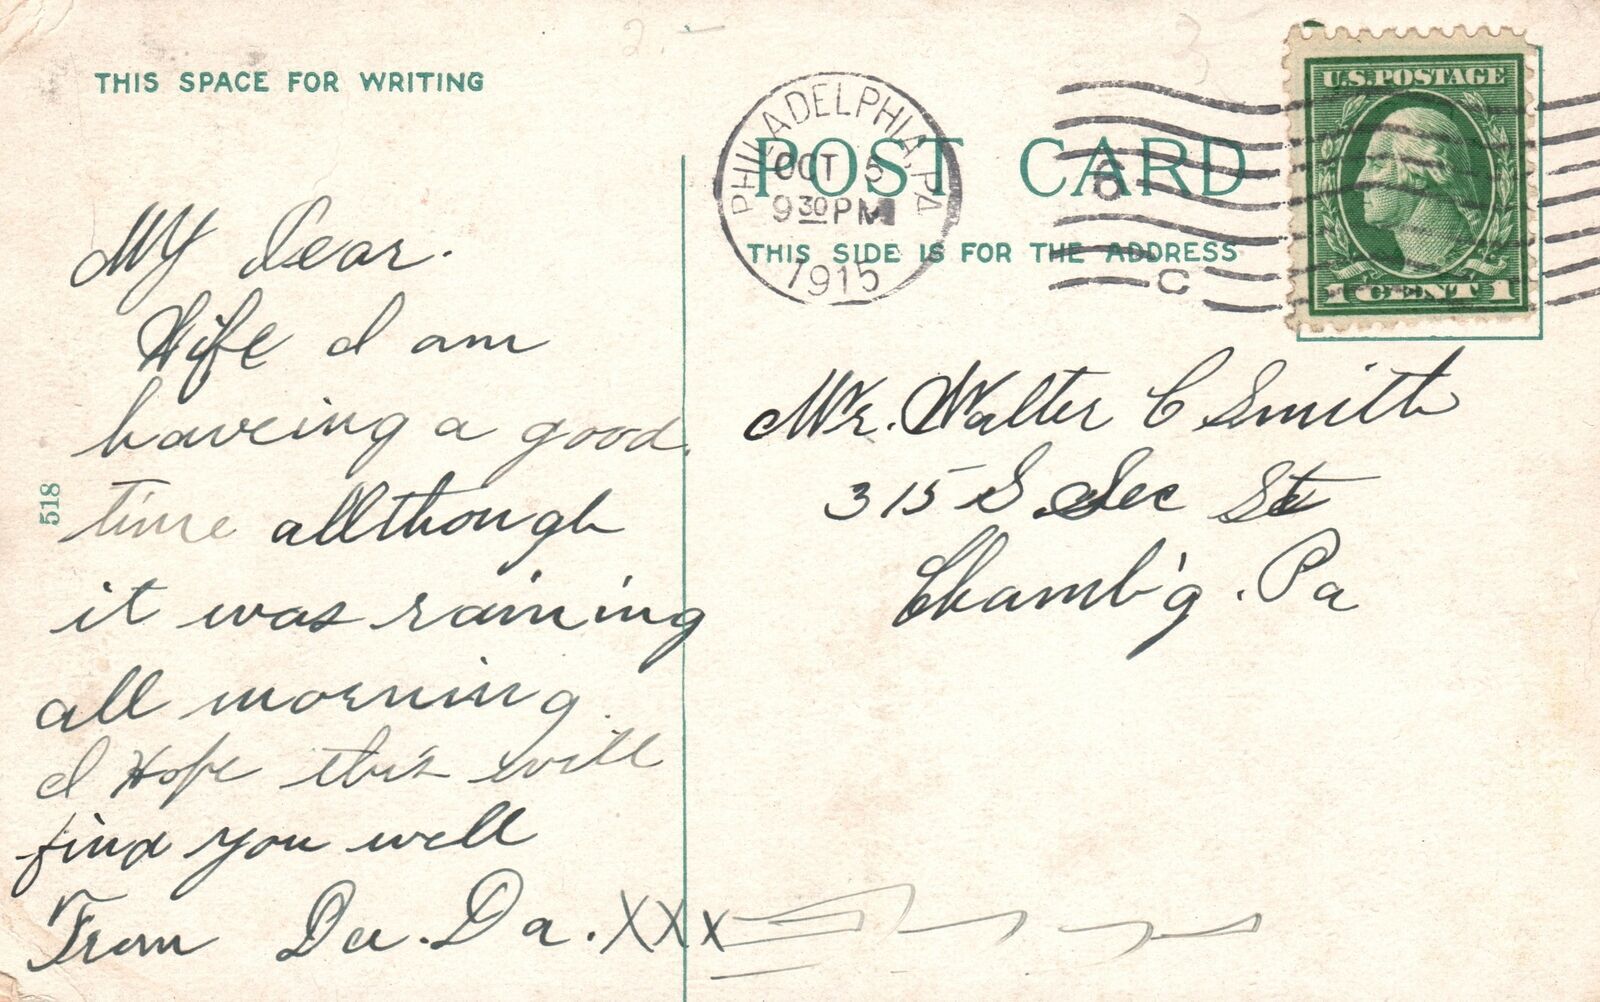 THIS SPACE FOR WRITING
My Dear.
Wife I am
haveing a good
time allthough
it was raining
all morning.
I Hope this will
find you well
From Da. Da. XXX
518
PHILADELPHIA, PA
OCT 5
9 30 PM
1915
POST CARD
THIS SIDE IS FOR THE ADDRESS
U.S. POSTAGE
1 CENT 1
C
Mr. Walter C Smith
315 S. Sec St
Chamb'g. Pa